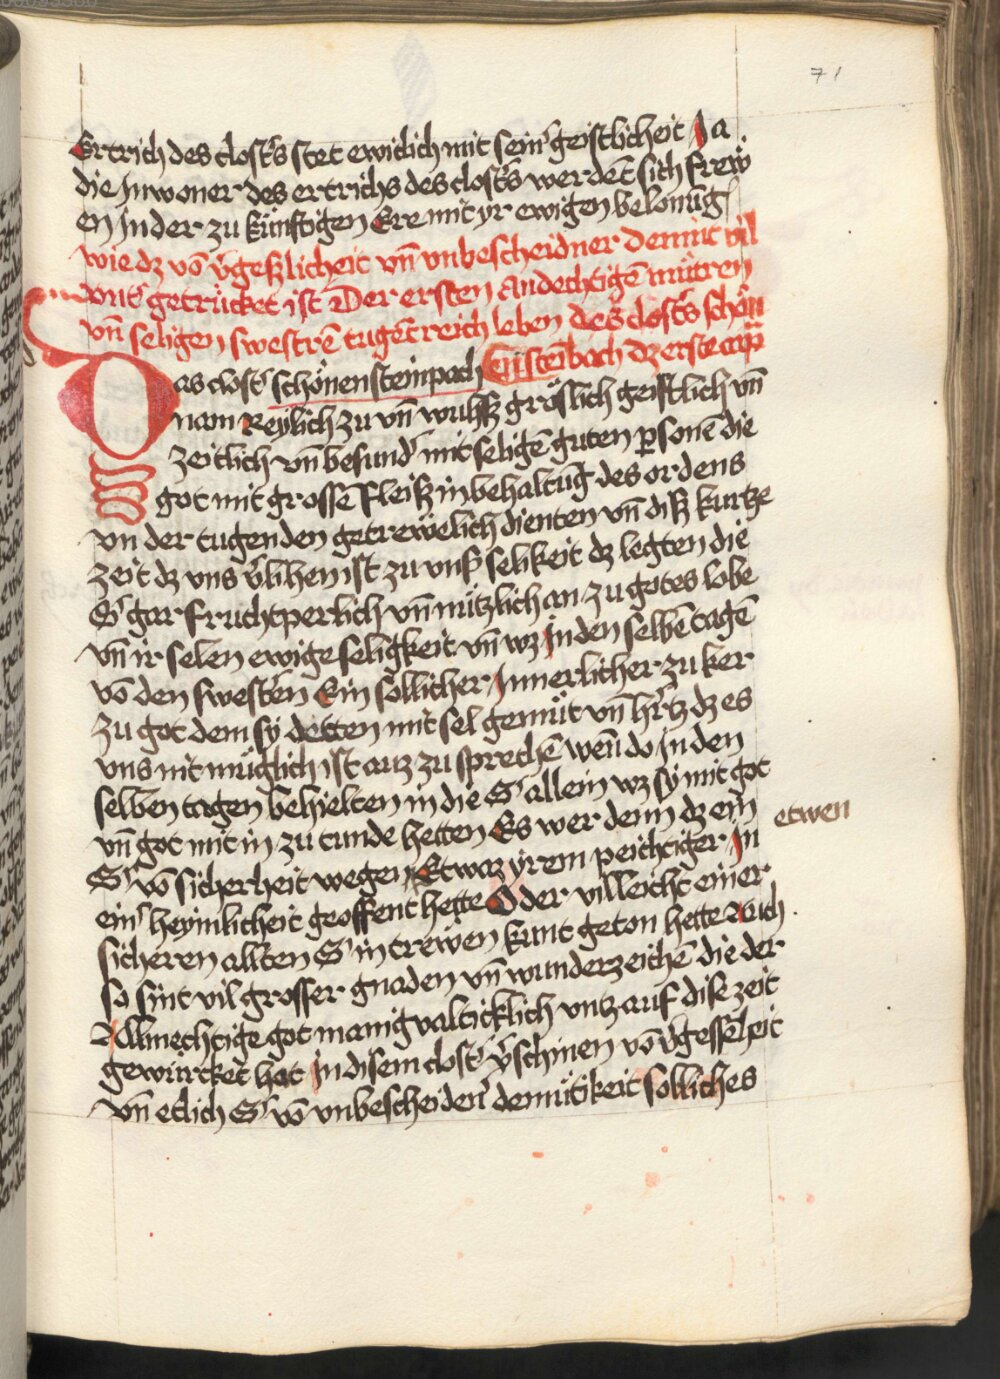 71
Ertrich des closters stet ewiclich mit seiner geistlicheit Ja
die Jnwoner des ertrichs des closters werdēt sich frew
en Jn der zu künftigen Ere mit yr ewigen belonūg
wie dz vō v̓geszlicheit vn̄ vnbescheidner demüt vil
vnt̓getrücket ist Der ersten andechtigē mütren
vn̄ seligen swestrē tugēt reich leben des closters schön
Das clost̓ schönensteinpach Ein stēbach dz erste cap
nam Reylich zu vn̄ wuhsz gröslich geistlich vn̄
zeitlich vn̄ besund̓ mit seligē guten ꝑsonē die
got mit grossē fleisz in behaltūg des ordens
vn der tugenden getrewelich dienten vn̄ disz kurtze
zeit dz vns v̓lihen ist zu vnsz selikeit dz legten die
S̓ gar fruchtperlich vn̄ nützlich an zu gotes lobe
vn̄ ir selen ewige seligkeit vn̄ wz Jn den selbē tagē
vō den swestern Ein söllicher Jnnerlicher zu ker
zu got dem sy detten mit sel gemüt vn̄ h̓rtz dz es
vns nit müglich ist auz zu sprechē wen̄ do Jn den
selben tagen behielten in die S̓ allein wz sy mit got
vn̄ got mit in zu tunde hetten Es wer denn dz ein
etwen
S̓ vō sicherheit wegen Etwaz yrem peichtiger Jn
ein̓ heymlicheit geoffent hette Oder villeicht einer
sicheren allten S̓ in trewen kunt geton hette Auch
so sint vil grosser gnaden vn̄ wunderzeichē die der
Allmechtige got manigvalticklich vntz auf dise zeit
gewürcket hat Jn disem clost̓ v̓schinen vō v̓gessēheit
vn̄ etlich S̓ vō vnbescheiden̓ demütikeit solliches